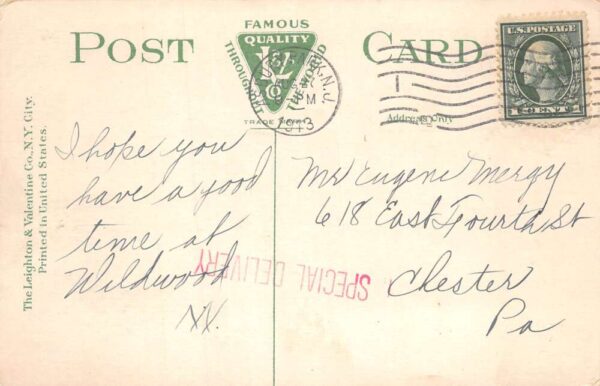 POST CARD
FAMOUS
QUALITY
THROUGHOUT THE WORLD
L & V
Co
TRADE MARK
N.J.
M
1913
U.S. POSTAGE
1 CENT 1
Address Only
The Leighton & Valentine Co., N.Y. City.
Printed in United States.
I hope you
have a good
time at
Wildwood
Mr Eugene Mergy
618 East Fourth St
Chester
Pa
SPECIAL DELIVERY